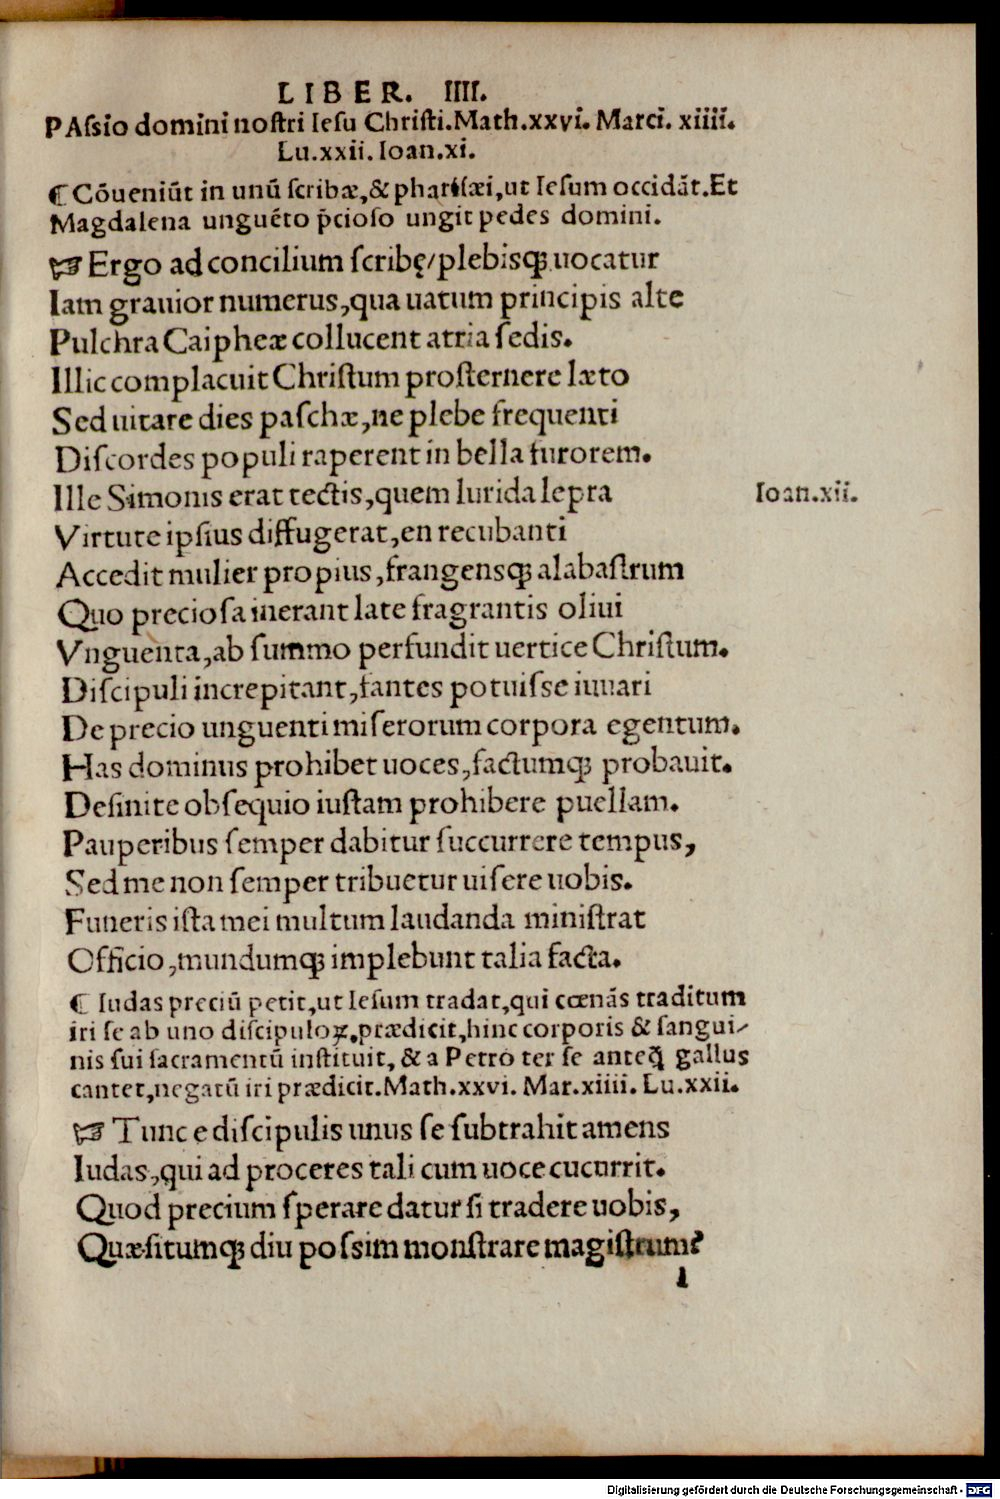 LIBER. IIII.
PAſsio domini noſtri Ieſu Chriſti.Math.xxvi. Marci. xiiii.
Lu.xxii. Ioan.xi.
¶ Cōueniūt in unū ſcribæ,& phariſæi,ut Ieſum occidāt.Et
Magdalena unguēto p̄cioſo ungit pedes domini.
☞ Ergo ad concilium ſcribę/plebisqꝫ uocatur
Iam grauior numerus,qua uatum principis alte
Pulchra Caipheæ collucent atria ſedis.
Illic complacuit Chriſtum proſternere læto
Sed uitare dies paſchæ,ne plebe frequenti
Diſcordes populi raperent in bella furorem.
Ille Simonis erat tectis,quem lurida lepra
Ioan.xii.
Virtute ipſius diffugerat,en recubanti
Accedit mulier propius,frangensqꝫ alabaſtrum
Quo precioſa inerant late fragrantis oliui
Vnguenta,ab ſummo perfundit uertice Chriſtum.
Diſcipuli increpitant,fantes potuiſse iuuari
De precio unguenti miſerorum corpora egentum.
Has dominus prohibet uoces,factumqꝫ probauit.
Deſinite obſequio iuſtam prohibere puellam.
Pauperibus ſemper dabitur ſuccurrere tempus,
Sed me non ſemper tribuetur uiſere uobis.
Funeris iſta mei multum laudanda miniſtrat
Officio,mundumqꝫ implebunt talia facta.
¶ Iudas preciū petit,ut Ieſum tradat,qui cœnās traditum
iri ſe ab uno diſcipuloꝝ,prædicit,hinc corporis & ſangui/
nis ſui ſacramentū inſtituit, & a Petro ter ſe anteq̄ gallus
cantet,negatū iri prædicit.Math.xxvi. Mar.xiiii. Lu.xxii.
☞ Tunc e diſcipulis unus ſe ſubtrahit amens
Iudas,qui ad proceres tali cum uoce cucurrit.
Quod precium ſperare datur ſi tradere uobis,
Quæſitumqꝫ diu poſsim monſtrare magiſtrum?
l
Digitalisierung gefördert durch die Deutsche Forschungsgemeinschaft - DFG